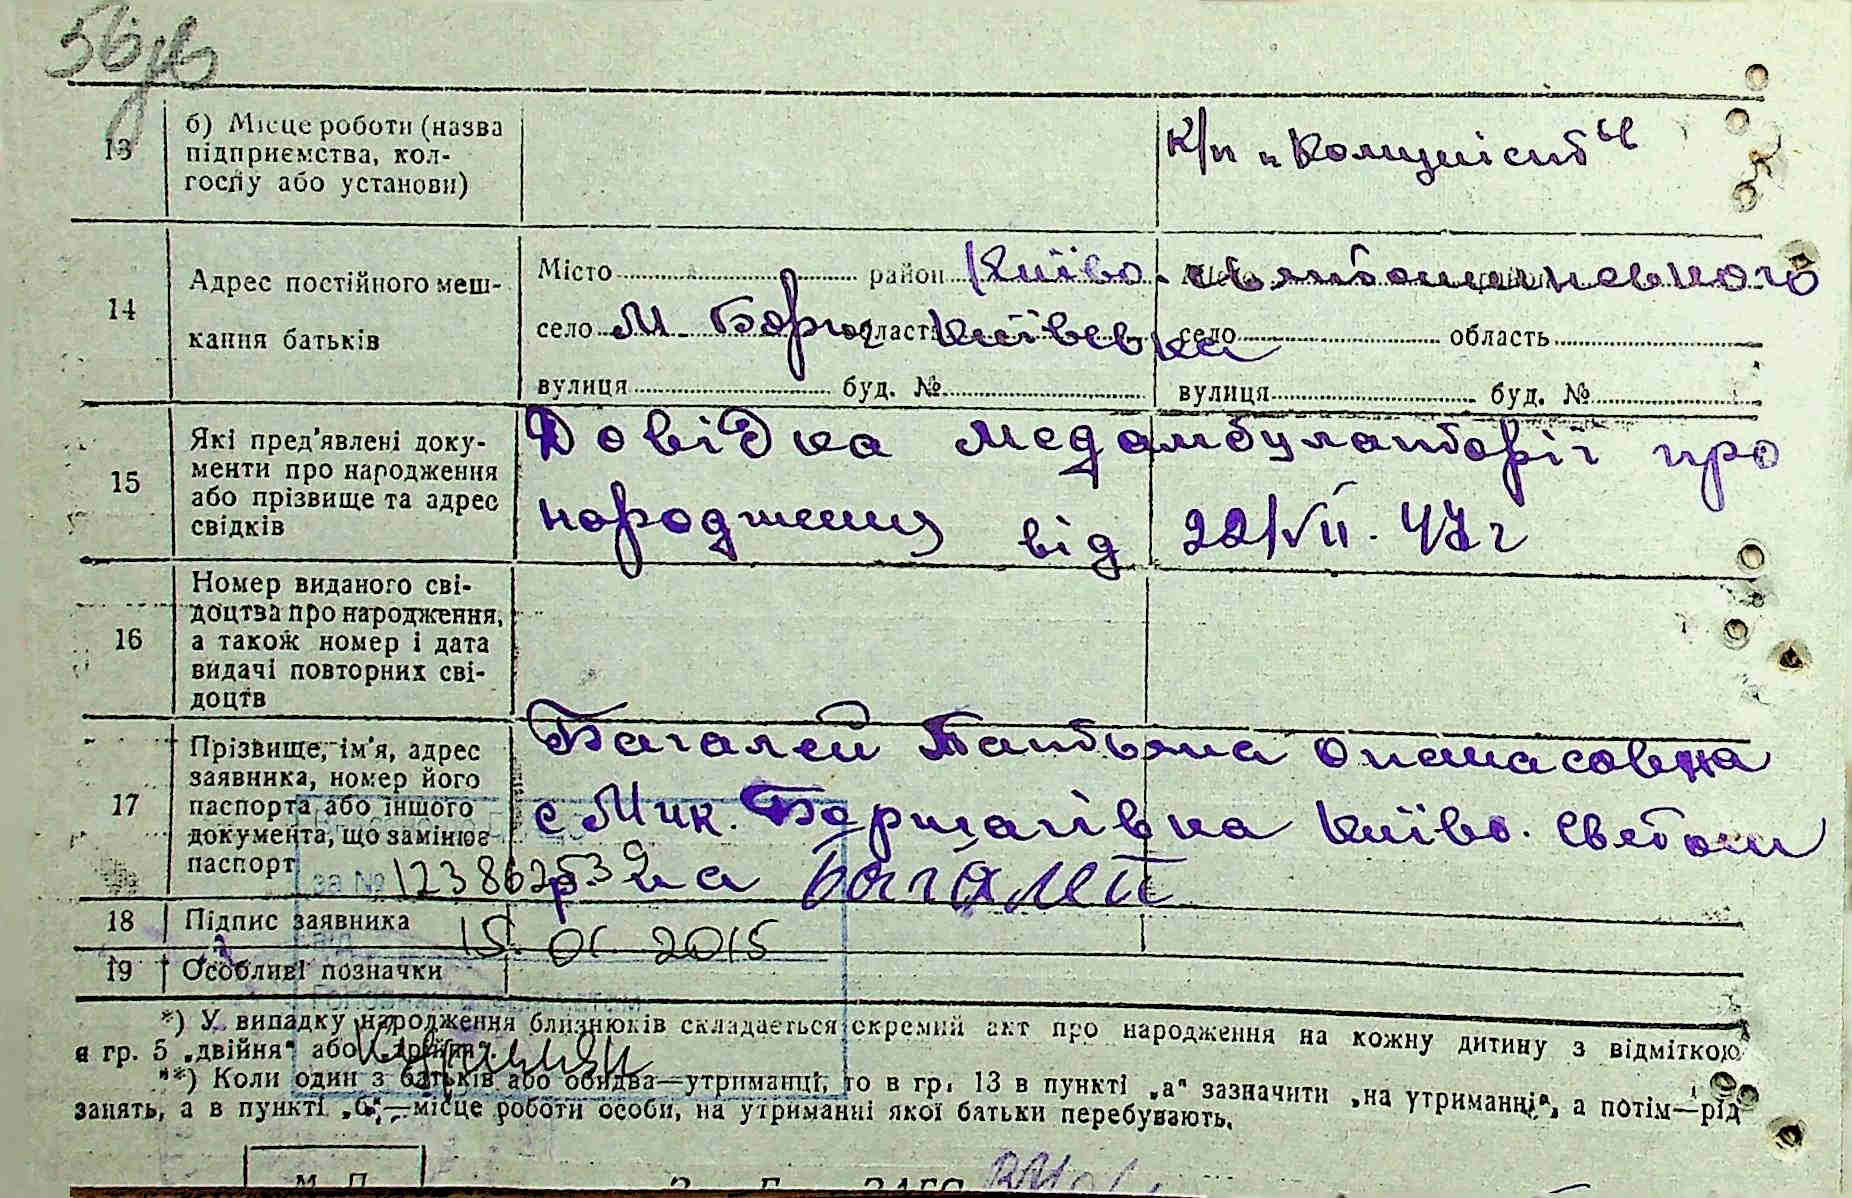 13
б) Місце роботи (назва
підприємства, кол-
госпу або установи)
к/п „Комуніст“
14
Адрес постійного меш-
кання батьків
Місто район Києво-Святошинського
село М Борщ область Київська село область
вулиця буд. № вулиця буд. №
15
Які пред'явлені доку-
менти про народження
або прізвище та адрес
свідків
Довідка медамбулаторії про
народження від 22/VII. 47 г
16
Номер виданого сві-
доцтва про народження,
а також номер і дата
видачі повторних сві-
доцтв
17
Прізвище, ім'я, адрес
заявника, номер його
паспорта або іншого
документа, що замінює
паспорт
Багалей Татьяна Опанасовна
с Мик. Борщагівка Києво. Святош
р-на Багалей
за № 123862539
18 Підпис заявника
15 01 2015
19 Особливі позначки
*) У випадку народження близнюків складається окремий акт про народження на кожну дитину з відміткою
в гр. 5 „двійня“ або „трійня“.
**) Коли один з батьків або обидва—утриманці, то в гр. 13 в пункті „а“ зазначити „на утриманні“, а потім—рід
занять, а в пункті „б“—місце роботи особи, на утриманні якої батьки перебувають.
М. П.
ЗАГС